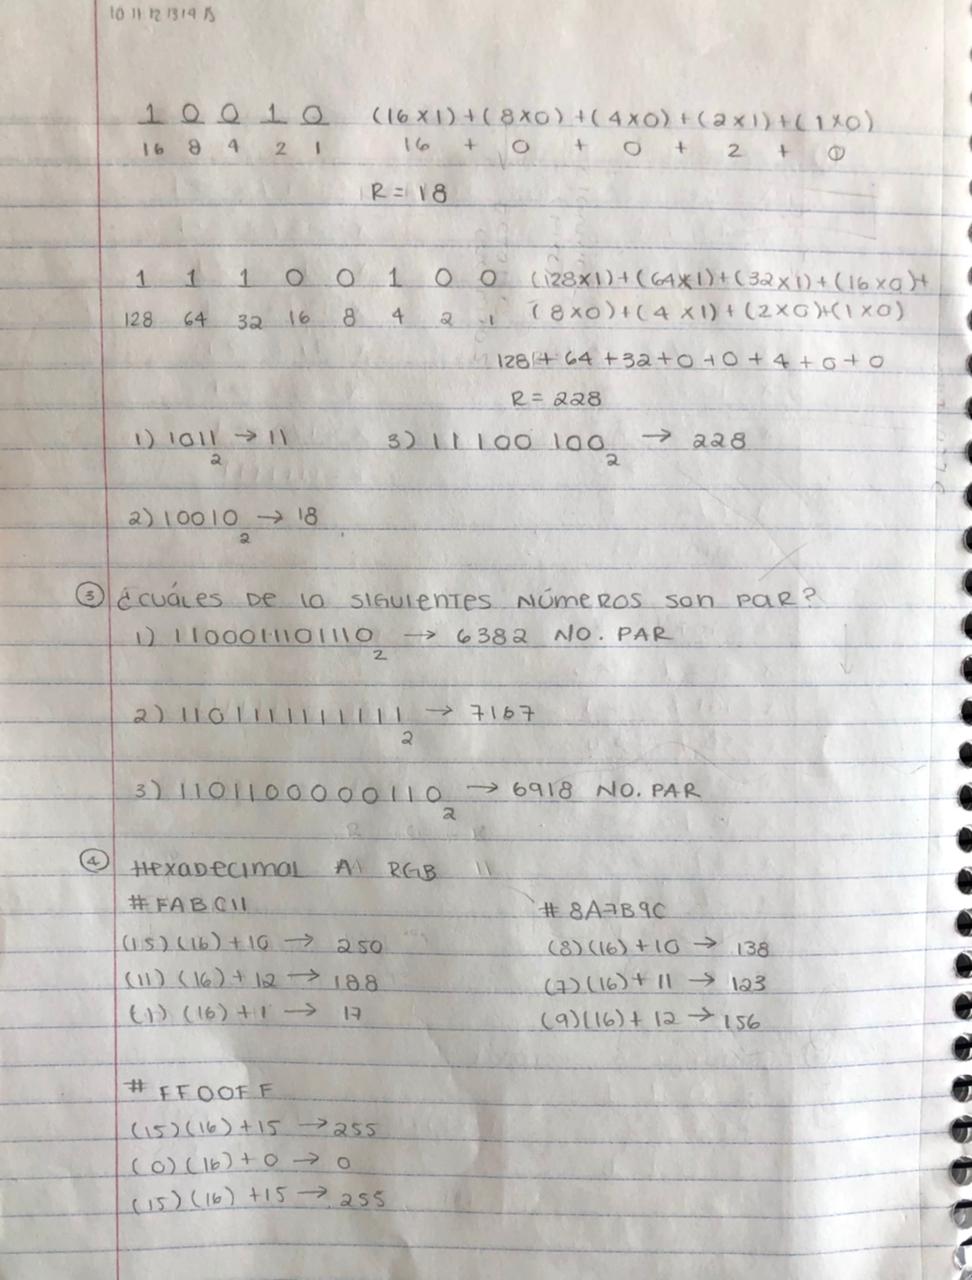 10 11 12 13 14 15
1 0 0 1 0 (16x1)+(8x0)+(4x0)+(2x1)+(1x0)
16 8 4 2 1 16 + 0 + 0 + 2 + 0
R=18
1 1 1 0 0 1 0 0 (128x1)+(64x1)+(32x1)+(16x0)+
128 64 32 16 8 4 2 1 (8x0)+(4x1)+(2x0)+(1x0)
128+64+32+0+0+4+0+0
R=228
1) 1011₂ → 11 3) 11100100₂ → 228
2) 10010₂ → 18
③ ¿CUÁLES DE LO SIGUIENTES NÚMEROS SON PAR?
1) 1100011101110₂ → 6382 NO. PAR
2) 1101111111111₂ → 7167
3) 1101100000110₂ → 6918 NO. PAR
④ HEXADECIMAL A RGB
#FABC11 #8A7B9C
(15)(16)+10 → 250 (8)(16)+10 → 138
(11)(16)+12 → 188 (7)(16)+11 → 123
(1)(16)+1 → 17 (9)(16)+12 → 156
# FF00FF
(15)(16)+15 → 255
(0)(16)+0 → 0
(15)(16)+15 → 255